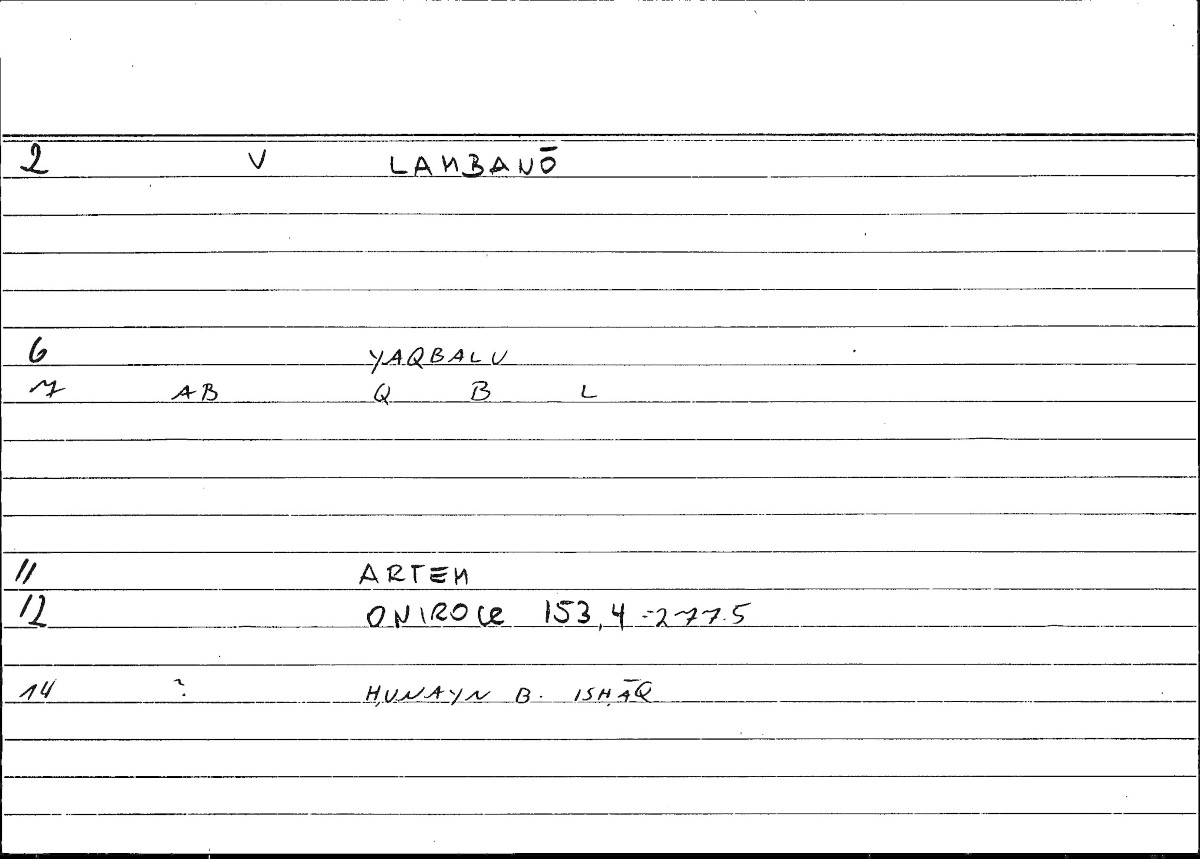 2 V LAMBANŌ
6 YAQBALU
7 AB Q B L
11 ARTEM
12 ONIROCR 153,4 = 277.5
14 ? ḤUNAYN B. ISḤĀQ